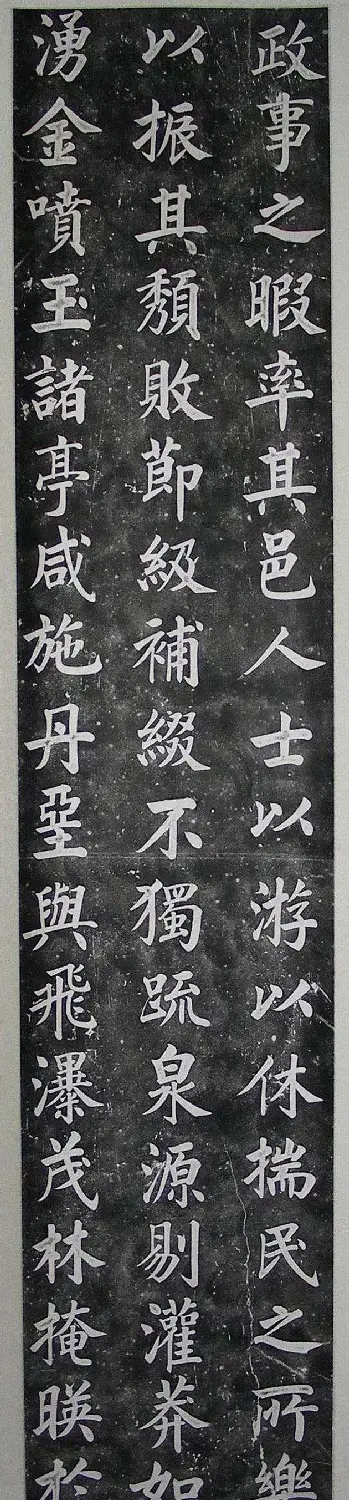 政事之暇率其邑人士以游以休揣民之所樂
以振其頹敗節級補綴不獨疏泉源剔灌莽如
湧金噴玉諸亭咸施丹堊與飛瀑茂林掩暎於